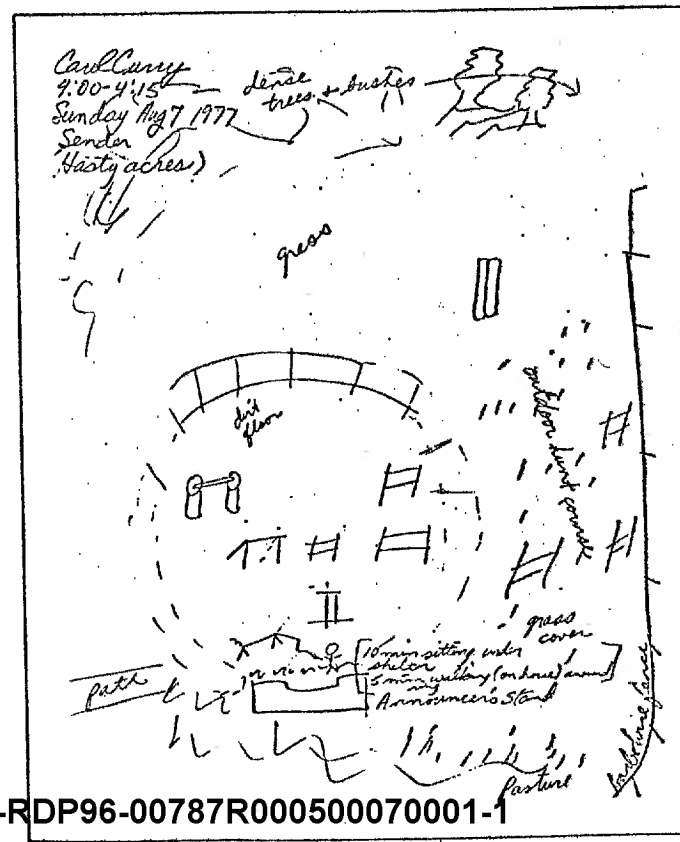 Carol Curry
4:00-4:15
Sunday Aug 7 1977
Sender
Hasty acres)
dense
trees + bushes
grass
dirt
floor
outdoor hunt course
grass
cover
10 min sitting under
shelter
5 min walking (on horse) around
ring
Announcer's Stand
path
Pasture
-RDP96-00787R000500070001-1